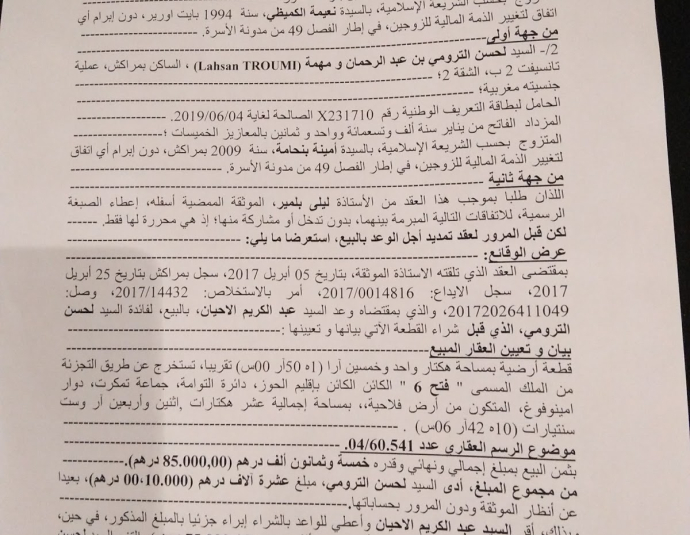 المتزوج بحسب الشريعة الإسلامية، بالسيدة نعيمة الكميظي، سنة 1994 بايت اورير، دون إبرام أي
اتفاق لتغيير الذمة المالية للزوجين، في إطار الفصل 49 من مدونة الأسرة.
من جهة أولى
2/- السيد لحسن الترومي بن عبد الرحمان و مهمة (Lahsan TROUMI) ، الساكن بمراكش، عملية
تانسيفت 2 ب، الشقة 2؛
جنسيته مغربية؛
الحامل لبطاقة التعريف الوطنية رقم X231710 الصالحة لغاية 2019/06/04.
المزداد الفاتح من يناير سنة ألف وتسعمائة وواحد و ثمانين بالمعازيز الخميسات ؛
المتزوج بحسب الشريعة الإسلامية، بالسيدة أمينة بنحامة، سنة 2009 بمراكش، دون إبرام أي اتفاق
لتغيير الذمة المالية للزوجين، في إطار الفصل 49 من مدونة الأسرة.
من جهة ثانية
اللذان طلبا بموجب هذا العقد من الأستاذة ليلى بلمير، الموثقة الممضية أسفله، إعطاء الصبغة
الرسمية، للاتفاقات التالية المبرمة بينهما، بدون تدخل أو مشاركة منها؛ إذ هي محررة لها فقط.
لكن قبل المرور لعقد تمديد أجل الوعد بالبيع، استعرضا ما يلي:
عرض الوقائع:
بمقتضى العقد الذي تلقته الاستاذة الموثقة، بتاريخ 05 أبريل 2017، سجل بمراكش بتاريخ 25 أبريل
2017، سجل الايداع: 2017/0014816، أمر بالاستخلاص: 2017/14432، وصل:
20172026411049، والذي بمقتضاه وعد السيد عبد الكريم الاحيان، بالبيع، لفائدة السيد لحسن
الترومي، الذي قبل شراء القطعة الآتي بيانها و تعيينها :
بيان و تعيين العقار المبيع
قطعة أرضية بمساحة هكتار واحد وخمسين آرا (1ه 50آر 00س) تقريبا، تستخرج عن طريق التجزئة
من الملك المسمى " فتح 6 " الكائن الكائن بإقليم الحوز، دائرة التوامة، جماعة تمكرت، دوار
امينوفوغ، المتكون من أرض فلاحية،، بمساحة إجمالية عشر هكتارات ,اثنين وأربعين أر وست
سنتيارات (10ه 42آر 06س) .
موضوع الرسم العقاري عدد 04/60.541.
بثمن البيع بمبلغ إجمالي ونهائي وقدره خمسة وثمانون ألف درهم (85.000,00 درهم).
من مجموع المبلغ، أدى السيد لحسن الترومي، مبلغ عشرة آلاف درهم (10.000،00 درهم)، بعيدا
عن أنظار الموثقة ودون المرور بحساباتها.
وبذلك، أقر السيد عبد الكريم الاحيان وأعطي للواعد بالشراء إبراء جزئيا بالمبلغ المذكور، في حين،